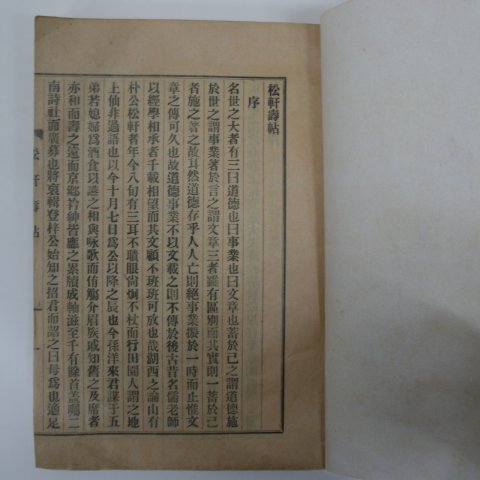 松軒壽帖
序
名世之大者有三曰道德也曰事業也曰文章也蓄於己之謂道德施
於世之謂事業著於言之謂文章三者雖有區別而其實則一蓄於己
者施之著之故耳然道德存乎人人亡則絕事業振於一時而止惟文
章之傳可久也故道德事業不以文載之則不傳於後古昔名儒老師
以經學相承者不載相望而其文顧不班班可放也哉湖西之論山有
朴公松軒者年今八旬有三耳不聵眼尙炯不杖而行田園人謂之地
上仙非過語也以今十月七日爲公以降之辰也令孫洋來君謀于五
弟若媳婦爲酒食以讌之相與咏歌而侑觴介眉族戚知舊之及席者
亦和而壽之遠而京鄕衿紳皆應之累牘成軸滋至千有餘首蓋囑二
南詩社而廣募也將裒輯登梓公始知之招君而詔之曰毋爲也適足
松軒壽帖